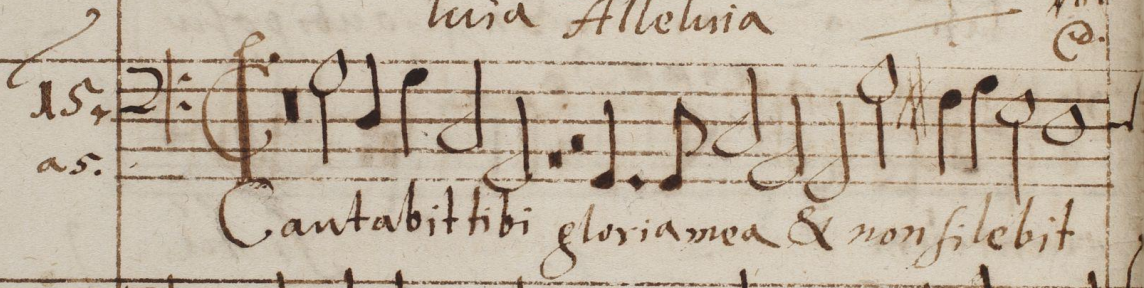 luia Alleluia
15.
a5.
Cantabit tibi gloria mea & non silebit